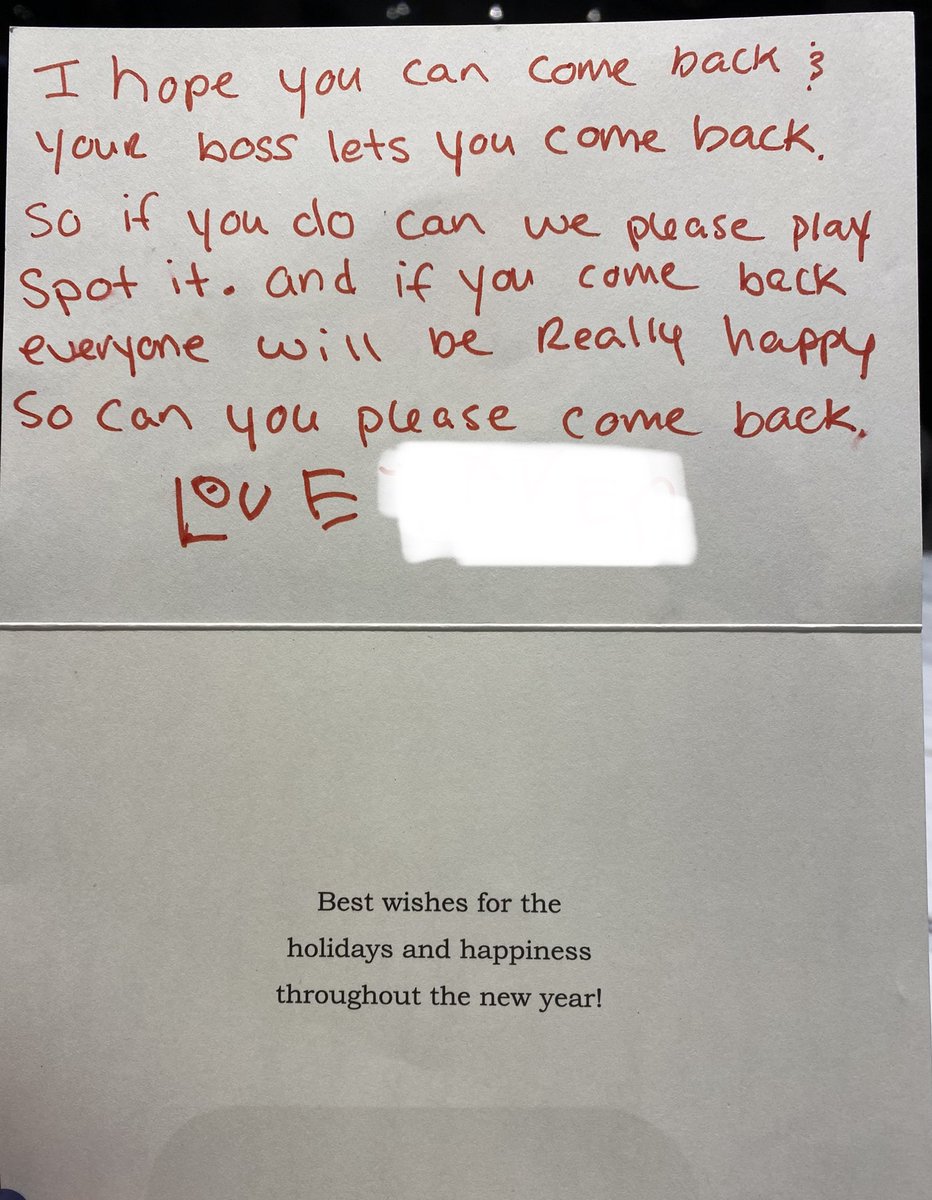 I hope you can come back &
your boss lets you come back.
So if you do can we please play
Spot it. and if you come back
everyone will be Really happy
So can you please come back.
LOVE
Best wishes for the
holidays and happiness
throughout the new year!